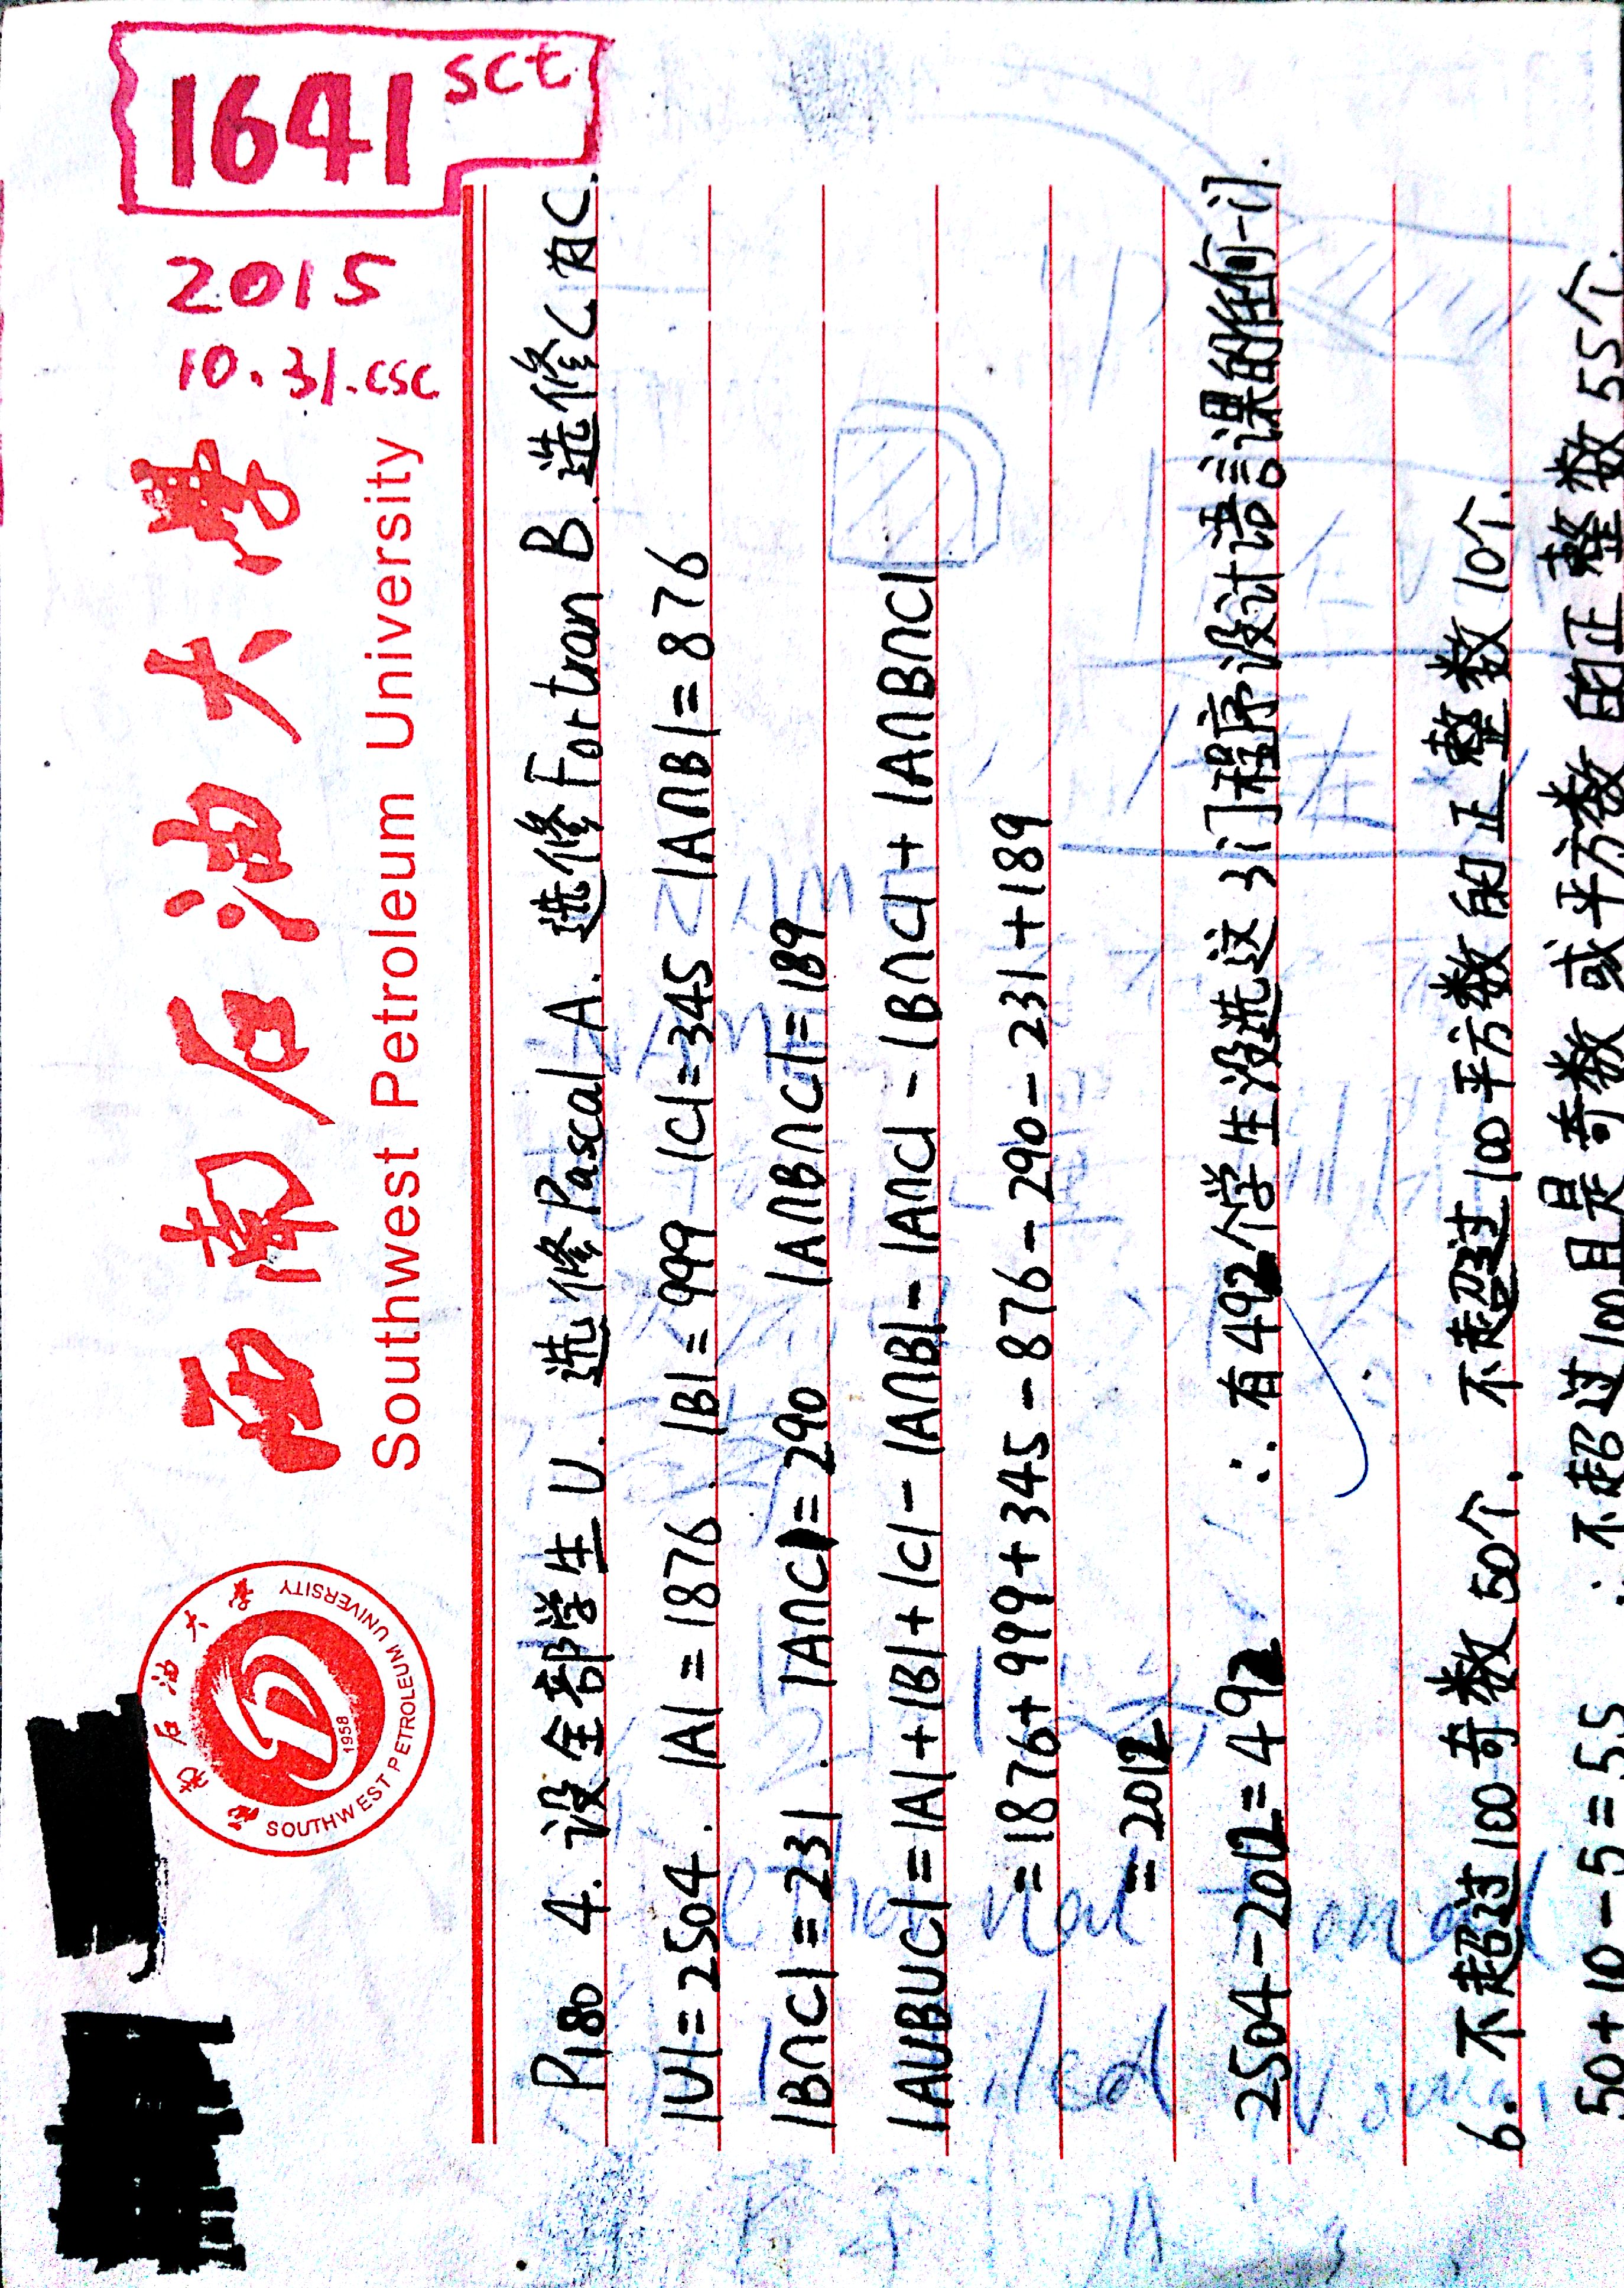 1641 SCE
2015
10.31.CSC
西南石油大学
Southwest Petroleum University
SOUTHWEST PETROLEUM UNIVERSITY
1958
P180 4. 设全部学生 U. 选修 Pascal A. 选修 Fortran B. 选修 C 为 C.
|U|=2504. |A|=1876. |B|=999 |C|=345 |A∩B|=876
|B∩C|=231. |A∩C|=290 |A∩B∩C|=189
|A∪B∪C|=|A|+|B|+|C|-|A∩B|-|A∩C|-|B∩C|+|A∩B∩C|
=1876+999+345-876-290-231+189
=2012
2504-2012=492 ∴有492个学生没选这3门程序设计语言课的任何一门.
6. 不超过100奇数50个. 不超过100平方数的正整数10个.
50+10-5=55 ∴不超过100且是奇数或平方数的正整数55个.